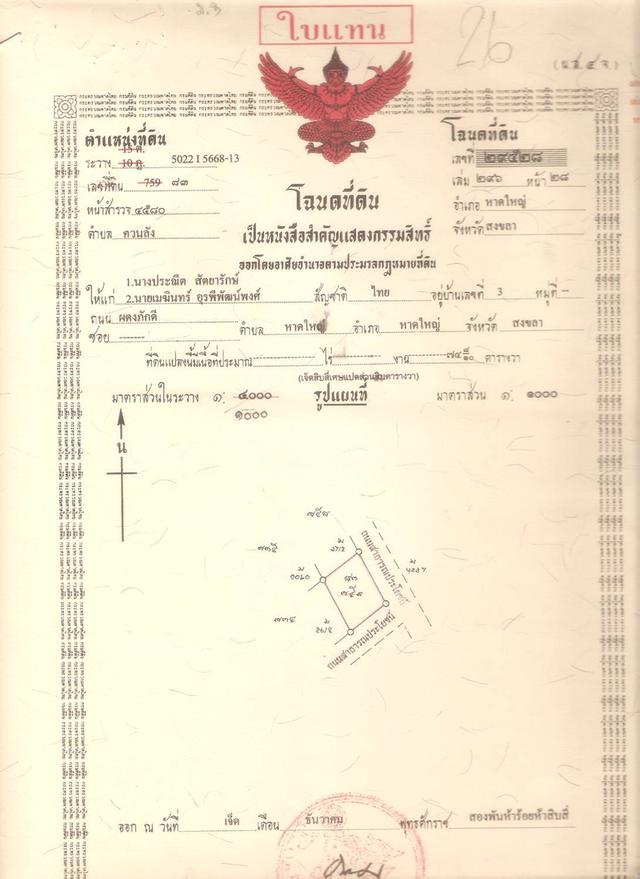 ใบแทน
26
(น.ส.๔ จ.)
ตำแหน่งที่ดิน
ระวาง 10 ต. 5022 I 5668-13
เลขที่ดิน 759 ๘๓
หน้าสำรวจ ๔๕๘๐
ตำบล ควนลัง
โฉนดที่ดิน
เลขที่ ๒๙๕๒๘
เล่ม ๒๙๖ หน้า ๒๘
อำเภอ หาดใหญ่
จังหวัด สงขลา
โฉนดที่ดิน
เป็นหนังสือสำคัญแสดงกรรมสิทธิ์
ออกโดยอาศัยอำนาจตามประมวลกฎหมายที่ดิน
1.นางประณีต สัตยารักษ์
ให้แก่ 2.นายเมฆินทร์ อุรพีพัฒน์พงศ์ สัญชาติ ไทย อยู่บ้านเลขที่ 3 หมู่ที่ -
ถนน ผดุงภักดี
ซอย ตำบล หาดใหญ่ อำเภอ หาดใหญ่ จังหวัด สงขลา
ที่ดินแปลงนี้มีเนื้อที่ประมาณ ไร่ งาน ๗๔ ๘/๑๐ ตารางวา
(เจ็ดสิบสี่เศษแปดส่วนสิบตารางวา)
มาตราส่วนในระวาง ๑: ๔๐๐๐ รูปแผนที่ มาตราส่วน ๑: ๑๐๐๐
๑๐๐๐
น
๗๕๘
๗๓๕
๘๓
๗๕๙
๗๓๔
ถนนสาธารณประโยชน์
ถนนสาธารณประโยชน์
ออก ณ วันที่ เจ็ด เดือน ธันวาคม พุทธศักราช สองพันห้าร้อยห้าสิบสี่